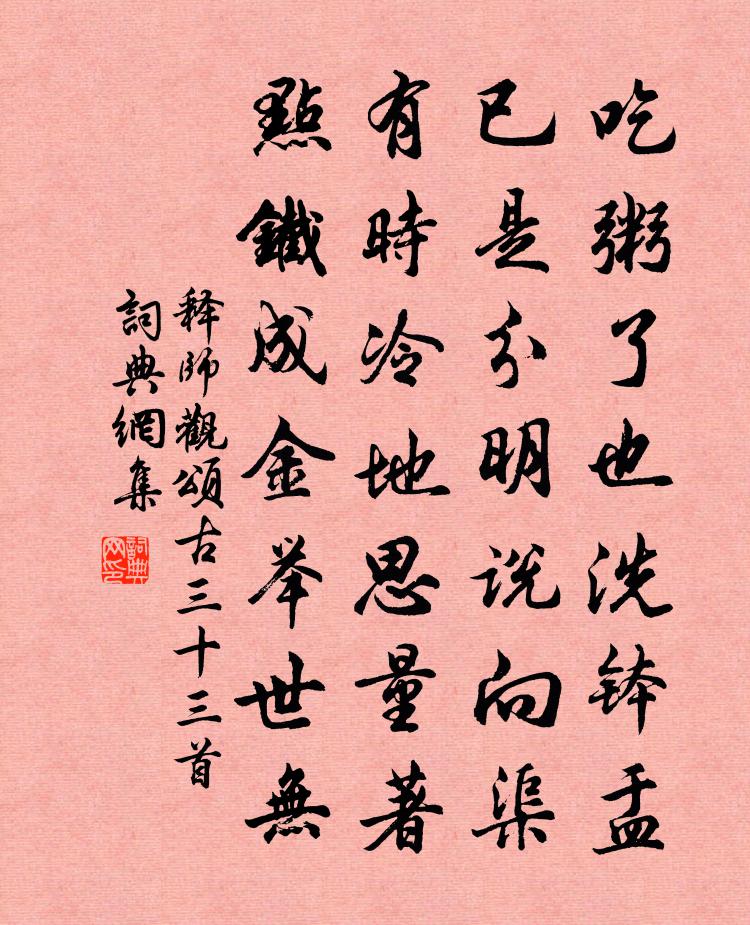 吃粥了也洗钵盂
已是分明说向渠
有時冷地思量著
點鐵成金举世無
释师觀頌古三十三首
詞典網集
詞典网印